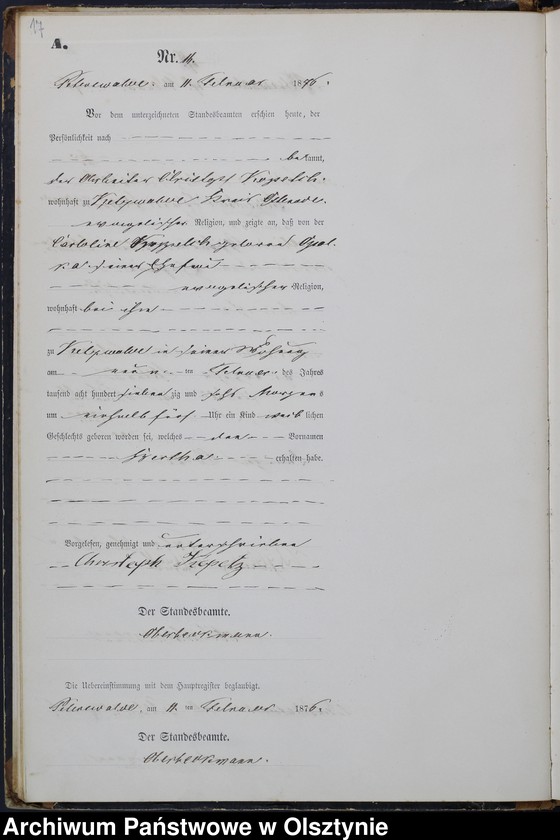 17
A.
Nr. 11.
am 11. Februar 1876.
Vor dem unterzeichneten Standesbeamten erschien heute, der
Persönlichkeit nach
bekannt,
der Arbeiter Christoph
wohnhaft zu Kreis
evangelischer Religion, und zeigte an, daß von der
Caroline geborene
seiner Ehefrau
evangelischer Religion,
wohnhaft bei ihm
zu in seiner Wohnung
am neun ten Februar des Jahres
tausend acht hundert sieben zig und sechs Morgens
um einhalb fünf Uhr ein Kind weib lichen
Geschlechts geboren worden sei, welches den Vornamen
Bertha erhalten habe.
Vorgelesen, genehmigt und unterschrieben
Christoph
Der Standesbeamte.
Die Uebereinstimmung mit dem Hauptregister beglaubigt.
am 11. ten Februar 1876.
Der Standesbeamte.
Archiwum Państwowe w Olsztynie